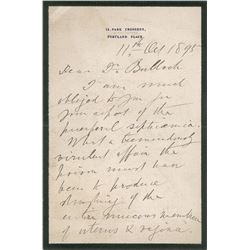 12, PARK CRESCENT,
PORTLAND PLACE.
11th Oct 1895
Dear Dr Bulloch
I am much
obliged to you for
your report of the
puerperal septicaemia
What a tremendously
virulent affair the
poison must have
been to produce
sloughing of the
entire mucous membrane
of uterus & vagina.